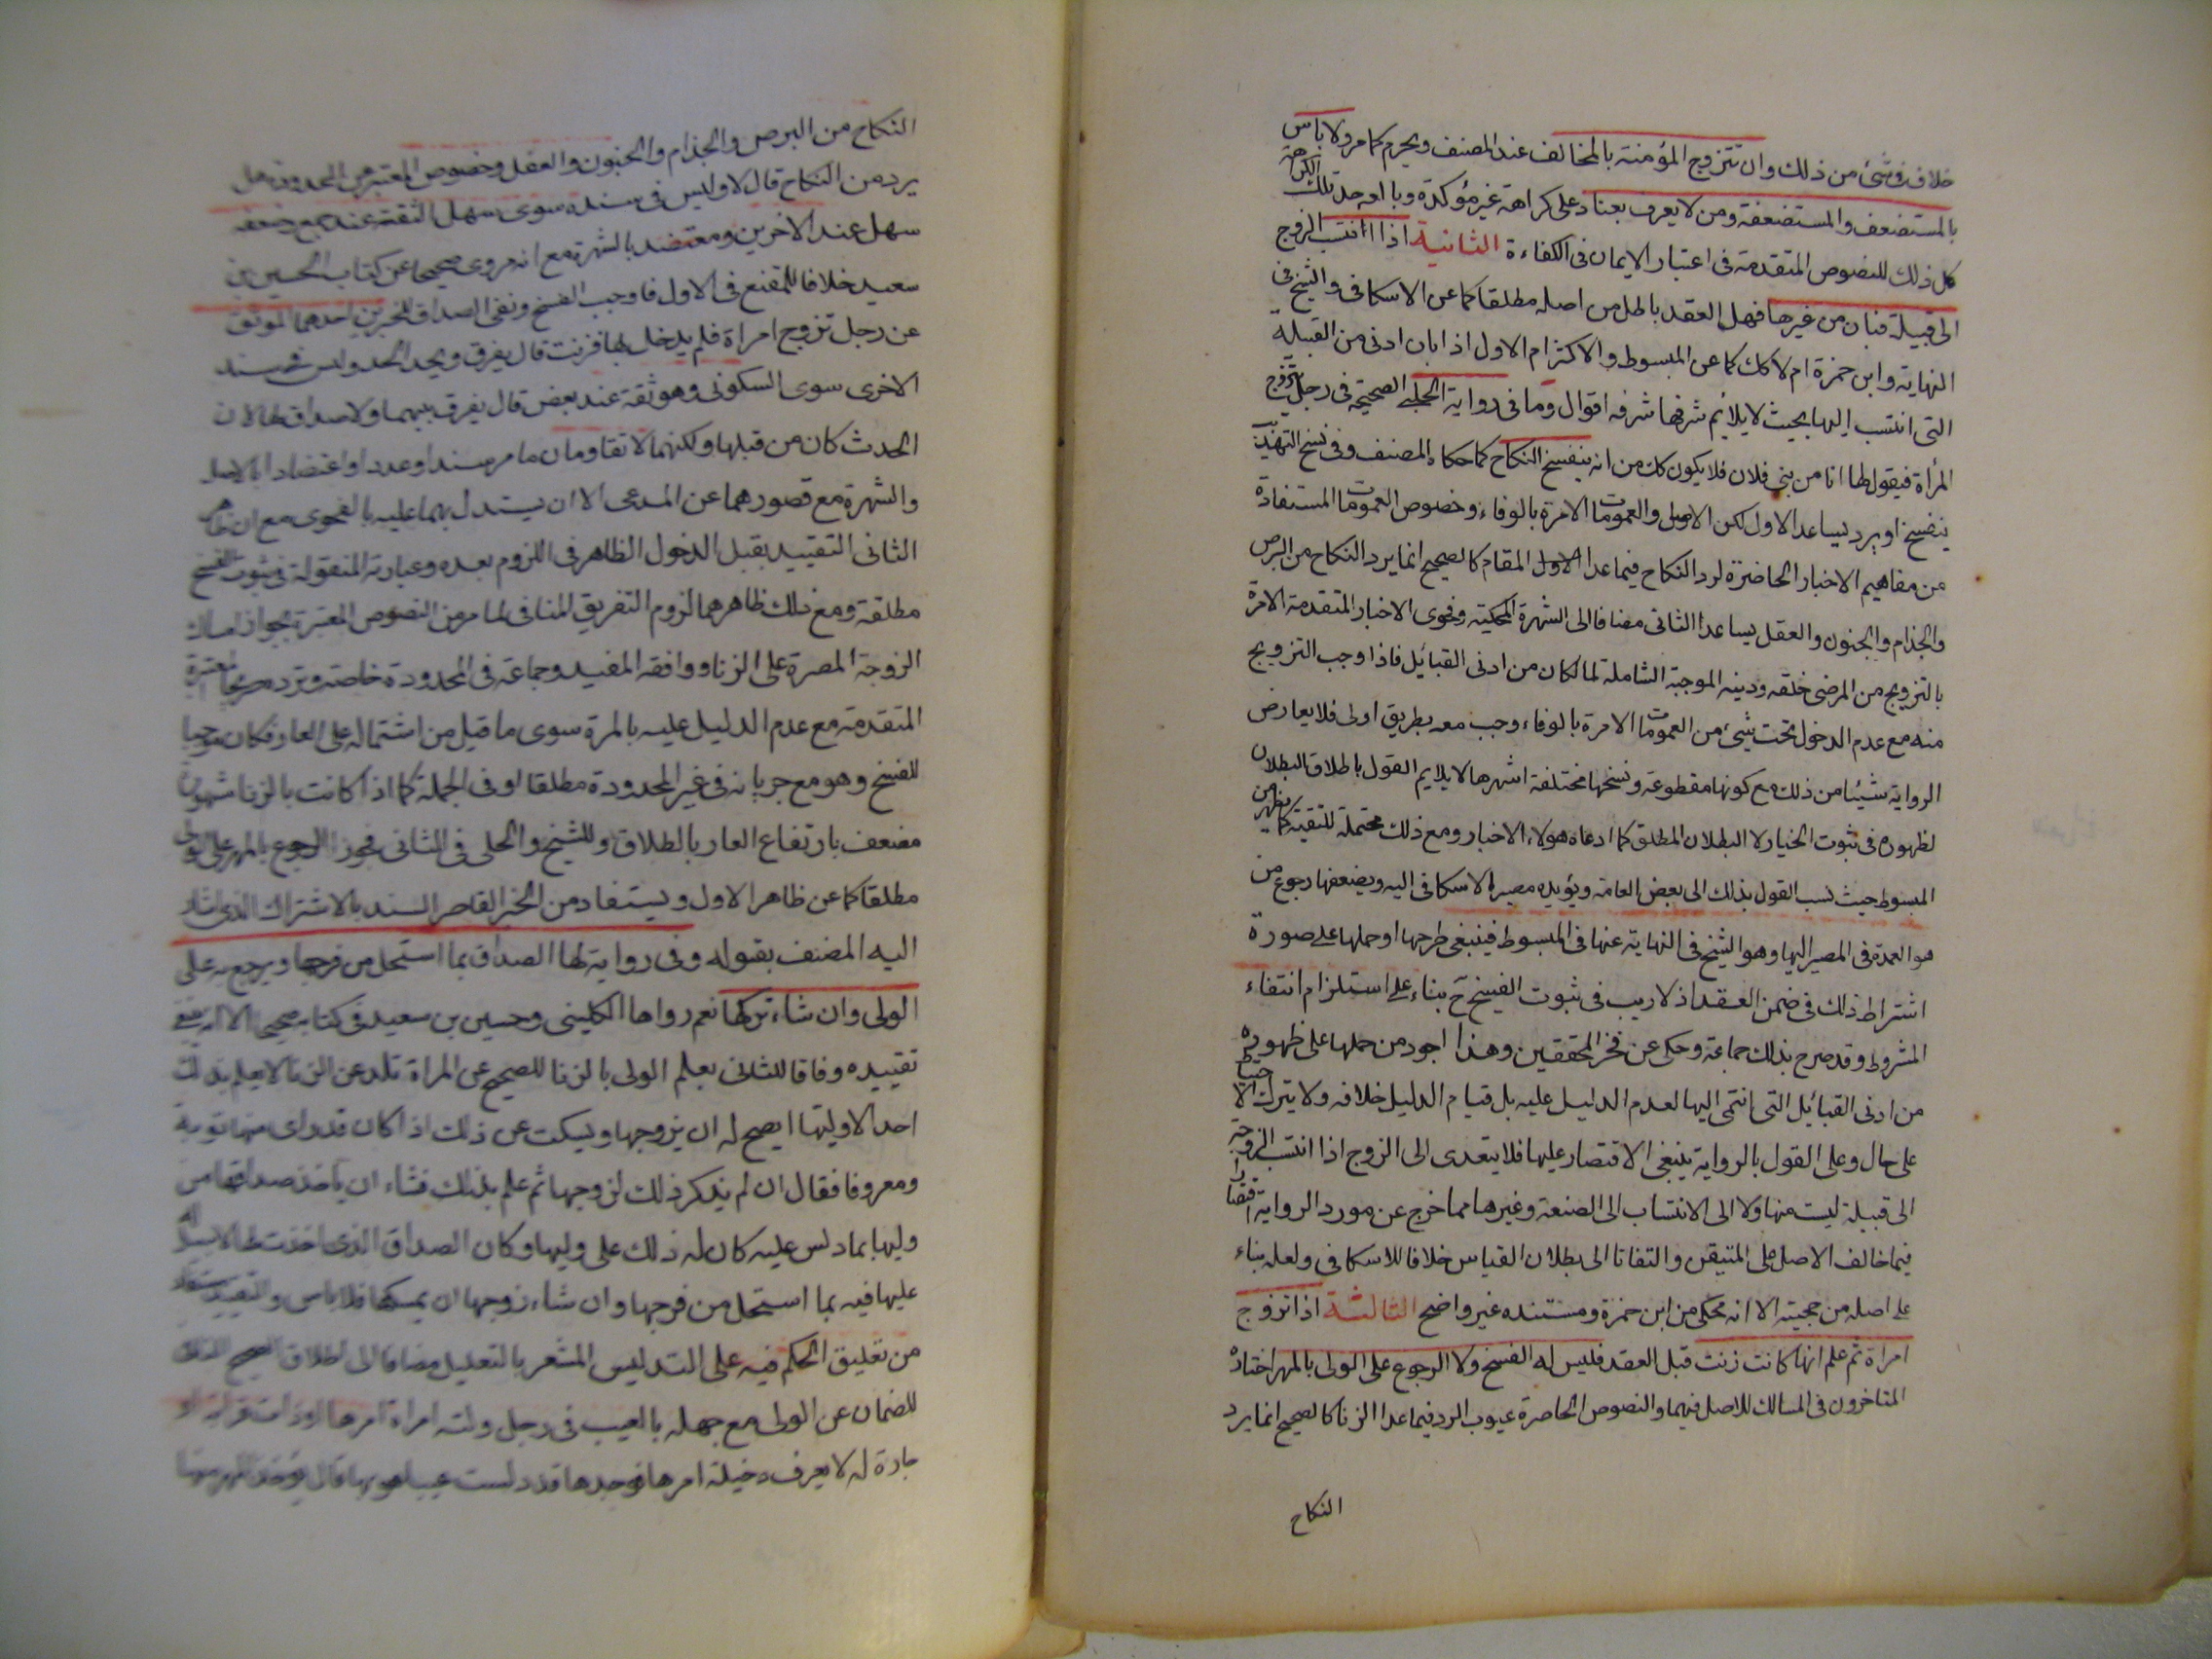 خلاف فى شئ من ذلك وان تتزوج المؤمنة بالمخالف عند المصنف ويحرم كما مر ولا باس
بالمستضعف والمستضعفة ومن لا يعرف بعناد على كراهة غير مؤكدة وبالوحد تلك الكراهة
كل ذلك للنصوص المتقدمة فى اعتبار الايمان فى الكفاءة الثانية اذا انتسب الزوج
الى قبيلة فبان من غيرها فهل العقد باطل من اصله مطلقا كما عن الاسكافى والشيخ فى
النهاية وابن حمزة ام لا كك كما عن المبسوط والاكثر ام الاول اذا بان ادنى من القبيلة
التى انتسب اليها بحيث لا يلائم شرفها شرفه اقوال وما فى رواية الحلبى الصحيحة فى رجل يتزوج
المرأة فيقول لها انا من بنى فلان فلا يكون كك من انه ينفسخ النكاح كما حكاه المصنف وفى نسخ التهذيب
ينفسخ او يرد يساعد الاول لكن الاصل والعمومات الامرة بالوفاء وخصوص العمومات المستفادة
من مفاهيم الاخبار الحاضرة لرد النكاح فيما عدا الاول المقام كالصحيح انما يرد النكاح من البرص
والجذام والجنون والعقل يساعدا الثانى مضافا الى الشهرة المحكية وفحوى الاخبار المتقدمة الامرة
بالتزويج من المرضى خلقه ودينه الموجبة الشاملة لما لكان من ادنى القبائل فاذا وجب التزويج
منه مع عدم الدخول تحت شئ من العمومات الامرة بالوفاء وجب معه بطريق اولى فلا يعارض
الرواية شيئا من ذلك مع كونها مقطوعة ونسخها مختلفة اشهرها لا يلايم القول باطلاق البطلان
لظهوره فى ثبوت الخيار لا البطلان المطلق كما ادعاه هولاء الاخبار ومع ذلك محتملة للتقية كما يظهر من
المبسوط حيث نسب القول بذلك الى بعض العامة ويؤيده مصير الاسكافى اليه ويضعفها رجوع من
هو العمدة فى المصير اليها وهو الشيخ فى النهاية عنها فى المبسوط فينبغى طرحها او حملها على صورة
اشتراط ذلك فى ضمن العقد اذ لا ريب فى ثبوت الفسخ ح بناء على استلزام انتفاء
المشروط وقد صرح بذلك جماعة وحكى عن فخر المحققين وهذا اجود من حملها على ظهوره
من ادنى القبائل التى انتمى اليها لعدم الدليل عليه بل قيام الدليل خلافه ولا يترك الاحتياط
على حال وعلى القول بالرواية ينبغى الاقتصار عليها فلا يتعدى الى الزوج اذا انتسب الزوجة
الى قبيلة ليست منها ولا الى الانتساب الى الصنعة وغيرها مما خرج عن مورد الرواية اقتصارا
فيما خالف الاصل على المتيقن والتفاتا الى بطلان القياس خلافا للاسكافى ولعله بناء
على اصله من حجيته الا انه محكى من ابن حمزة ومستنده غير واضح الثالثة اذا تزوج
امراة ثم علم انها كانت زنت قبل العقد فليس له الفسخ ولا الرجوع على الولى بالمهر اختاره
المتاخرون فى المسالك للاصل فيهما والنصوص الحاصرة عيوب الرد فيما عدا الزنا كالصحيح انما يرد
النكاح
النكاح من البرص والجذام والجنون والعقل وخصوص المعتبر عن المحدود هل
يرد من النكاح قال لا وليس فى سنده سوى سهل الثقة عند جمع وضعفه
سهل عند الاخرين ومعتضد بالشهرة مع انه مروى صحيحا عن كتاب الحسين بن
سعيد خلافا للمقنع فى الاول فاوجب الفسخ ونفى الصداق للخبرين احدهما الموثق
عن رجل تزوج امراة فلم يدخل بها فزنت قال يفرق ويحد الحد وليس فى سند
الاخرى سوى السكونى وهو ثقة عند بعض قال يفرق بينهما ولا صداق لها لان
الحدث كان من قبلها ولكنهما لا تقاومان ما مر سندا وعددا واعتضادا بالاصل
والشهرة مع قصورهما عن المدعى الا ان يستدل بهما عليه بالفحوى مع ان ظاهر
الثانى التقييد بقبل الدخول الظاهر فى اللزوم بعده وعبارته المنقولة فى ثبوت الفسخ
مطلقة ومع ذلك ظاهرهما لزوم التفريق المنافى لما مر من النصوص المعتبرة بجواز امساك
الزوجة المصرة على الزنا ووافقه المفيد وجماعة فى المحدودة خاصة وترده صريحا المعتبرة
المتقدمة مع عدم الدليل عليه بالمرة سوى ما قيل من اشتماله على العار فكان موجبا
للفسخ وهو مع جريانه فى غير المحدودة مطلقا او فى الجملة كما اذا كانت بالزنا مشهورة
مضعف بارتفاع العار بالطلاق وللشيخ والحلى فى الثانى فجوزا الرجوع بالمهر على الولى
مطلقا كما عن ظاهر الاول ويستفاد من الخبر القاصر السند بالاشتراك الذى اشار
اليه المصنف بقوله وفى رواية لها الصداق بما استحل من فرجها ويرجع به على
الولى وان شاء تركها نعم رواها الكلينى وحسين بن سعيد فى كتابه صحيحا الا انه ينبغى
تقييده وفاقا للثانى بعلم الولى بالزنا للصحيح عن المراة تلد من الزنا لا يعلم بذلك
احد الا وليها ايصح له ان يزوجها ويسكت عن ذلك اذا كان قد راى منها توبة
ومعروفا فقال ان لم يذكر ذلك لزوجها ثم علم بذلك فشاء ان ياخذ صداقها من
وليها بما دلس عليه كان له ذلك على وليها وكان الصداق الذى اخذت لها لا سبيل له
عليها فيه بما استحل من فرجها وان شاء زوجها ان يمسكها فلا باس والتقييد مستفاد
من تعليق الحكم فيه على التدليس المشعر بالتعليل مضافا الى اطلاق الصحيح النافى
للضمان عن الولى مع جهله بالعيب فى رجل ولته امراة امرها او ذات قرابة او
جارة له لا يعرف دخيلة امرها فوجدها قد دلست عيبا هو بها قال يؤخذ المهر منها